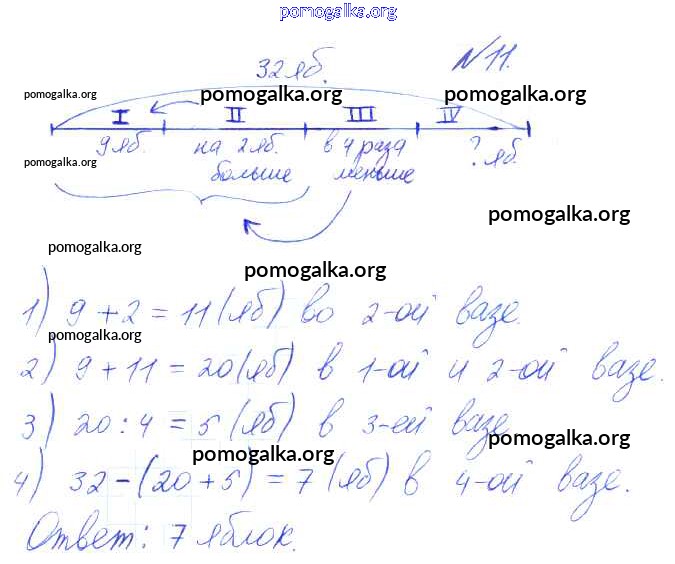 pomogalka.org
32 яб. №11.
pomogalka.org pomogalka.org pomogalka.org
I II III IV
9 яб. на 2 яб. в 4 раза ? яб.
pomogalka.org больше меньше
pomogalka.org
pomogalka.org
pomogalka.org
1) 9 + 2 = 11 (яб) во 2-ой вазе.
pomogalka.org
2) 9 + 11 = 20 (яб) в 1-ой и 2-ой вазе.
3) 20 : 4 = 5 (яб) в 3-ей вазе
pomogalka.org
4) 32 - (20 + 5) = 7 (яб) в 4-ой вазе.
Ответ: 7 яблок.